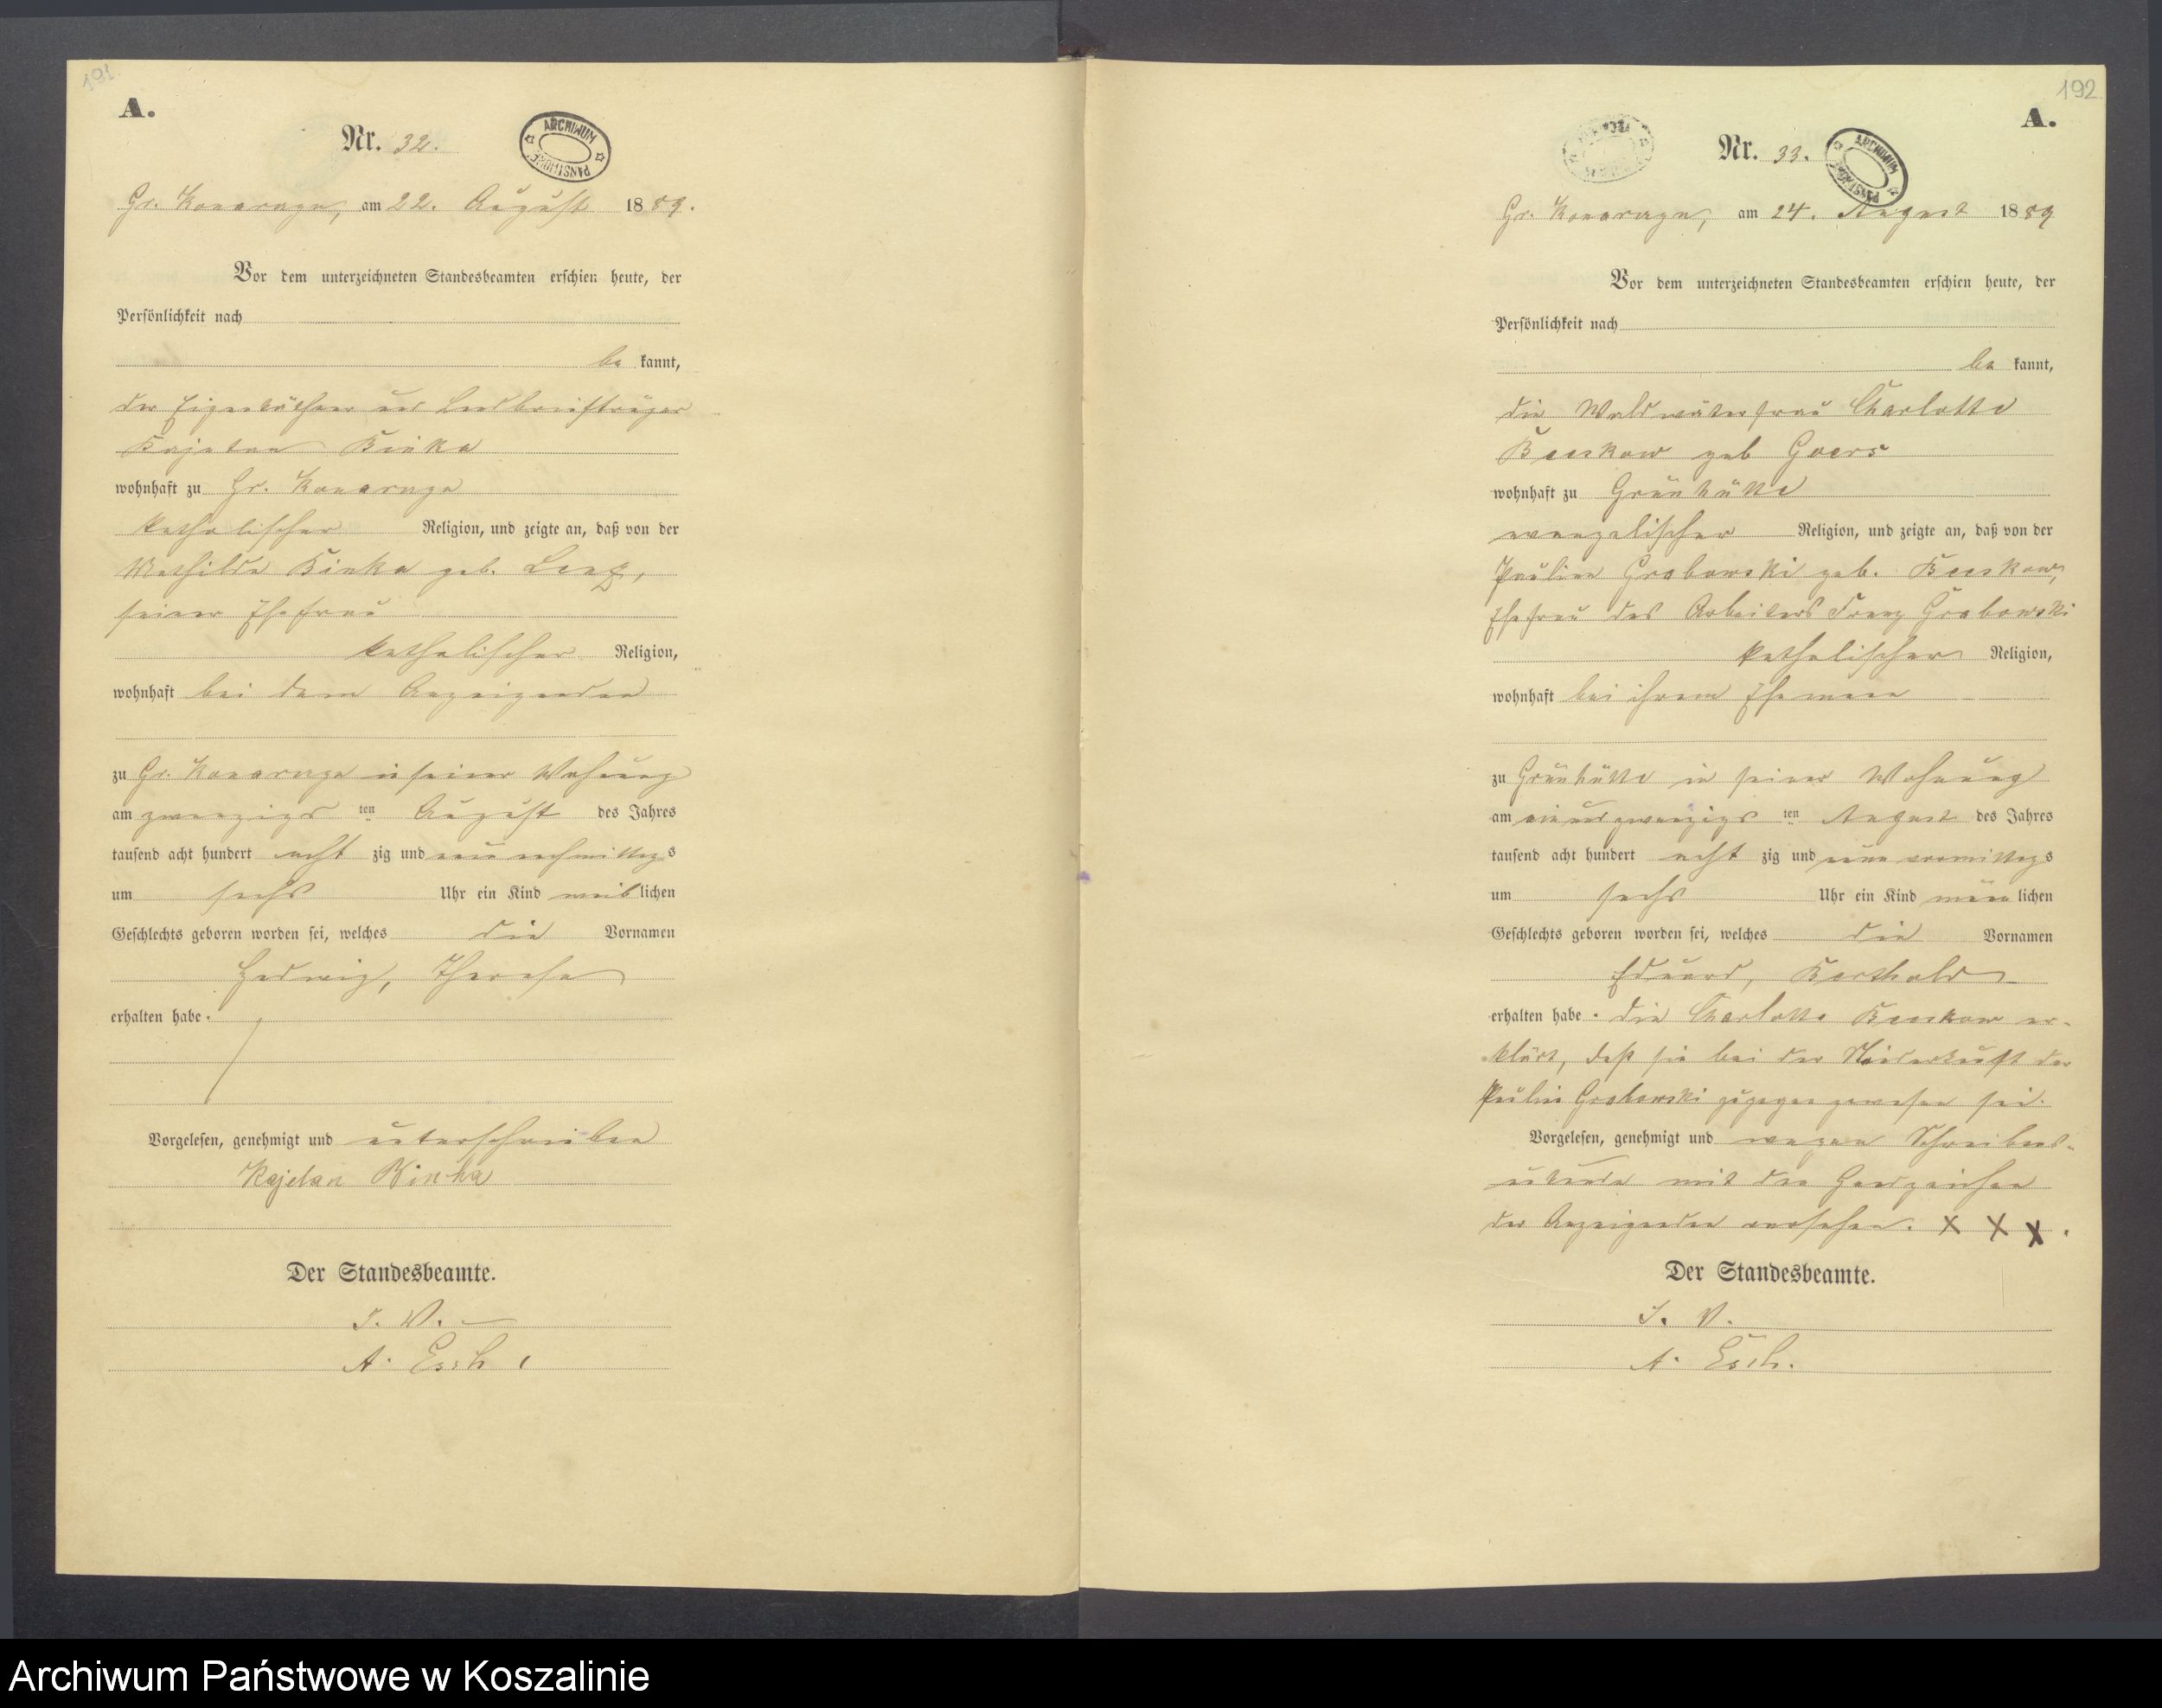 191.
A.
Nr. 32.
ARCHIWUM PAŃSTWOWE
Gr. Konarczyn, am 22. August 1889.
Vor dem unterzeichneten Standesbeamten erschien heute, der
Persönlichkeit nach
be kannt,
der Eigenkäthner und Landbriefträger
Kajetan Binka
wohnhaft zu Gr. Konarczyn
katholischer Religion, und zeigte an, daß von der
Mathilde Binka geb.
seiner Ehefrau
katholischer Religion,
wohnhaft bei dem Anzeigenden
zu Gr. Konarczyn in seiner Wohnung
am zwanzigs ten August des Jahres
tausend acht hundert acht zig und neun nachmittags
um sechs Uhr ein Kind weib lichen
Geschlechts geboren worden sei, welches die Vornamen
Hedwig, Therese
erhalten habe.
Vorgelesen, genehmigt und unterschrieben
Kajetan Binka
Der Standesbeamte.
I. V.
A. Esch.
192
A.
Nr. 33.
ARCHIWUM PAŃSTWOWE
Gr. Konarczyn, am 24. August 1889
Vor dem unterzeichneten Standesbeamten erschien heute, der
Persönlichkeit nach
be kannt,
die Waldwärterfrau Charlotte
Buskow geb Goers
wohnhaft zu Grünhütte
evangelischer Religion, und zeigte an, daß von der
Pauline Grabowski geb. Buskow,
Ehefrau des Arbeiters Franz Grabowski
katholischer Religion,
wohnhaft bei ihrem Ehemann
zu Grünhütte in seiner Wohnung
am einundzwanzigs ten August des Jahres
tausend acht hundert acht zig und neun vormittags
um sechs Uhr ein Kind männ lichen
Geschlechts geboren worden sei, welches die Vornamen
Eduard, Berthold
erhalten habe. die Charlotte Buskow er-
klärt, daß sie bei der Niederkunft der
Pauline Grabowski zugegen gewesen sei.
Vorgelesen, genehmigt und wegen Schreibens-
unkunde mit den Handzeichen
der Anzeigenden versehen. X X X.
Der Standesbeamte.
I. V.
A. Esch.
Archiwum Państwowe w Koszalinie